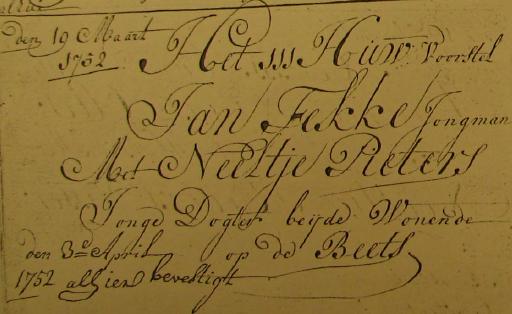 den 19 Maart
1752
Het III Huw Voorstel
Jan Fekke Jongman
Met Neeltje Pieters
Jonge Dogter beyde Wonende
op de Beets
den 3de April
1752 alhier bevestigt